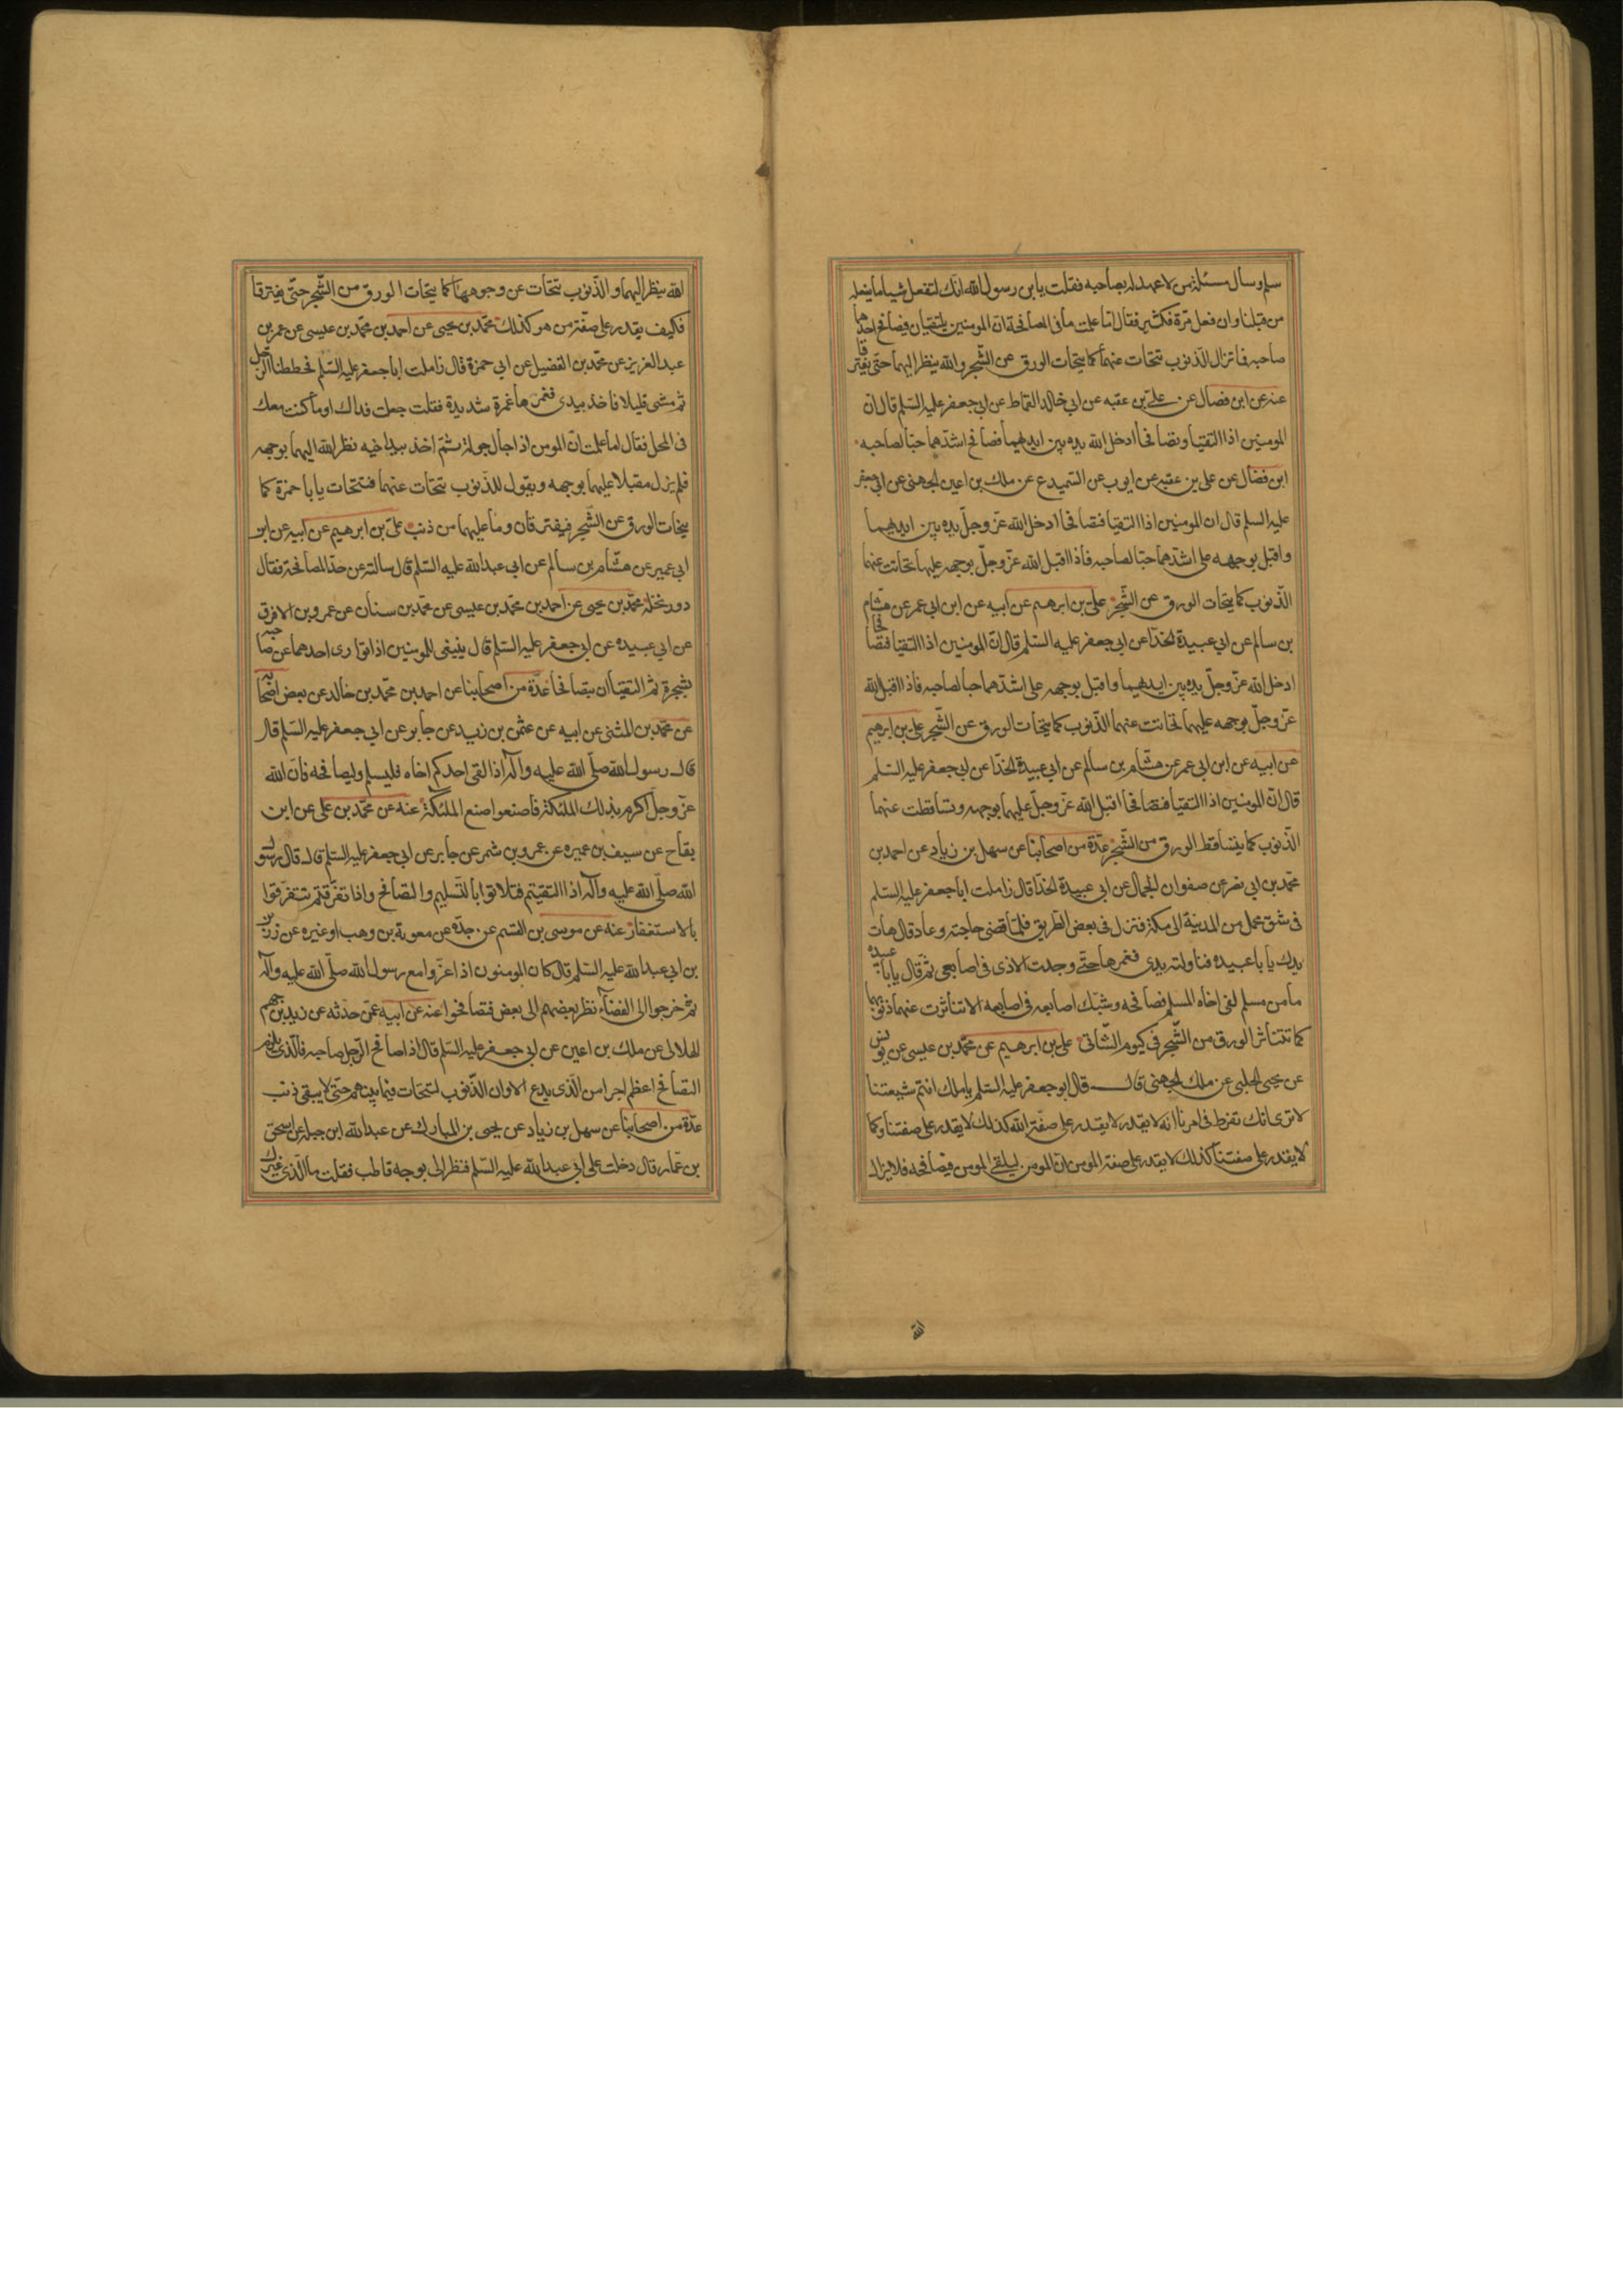 سلم وسأل مسئلة من لا عهد له بصاحبه فقلت يابن رسول الله انك لتفعل شيأ ما يفعله
من قبلنا وان فعل مرة فكثير فقال اما علمت ما فى المصافحة ان المومنين يلتقيان فيصافح احدهما
صاحبه فما تزال الذنوب تتحات عنهما كما يتحات الورق عن الشجر والله ينظر اليهما حتى يفترقا
عنه عن ابن فضال عن على بن عقبه عن ابى خالد القماط عن ابى جعفر عليه السلم قال ان
المومنين اذا التقيا وتصافحا ادخل الله يده بين ايديهما فصافح اشدهما حبا لصاحبه
ابن فضال عن على بن عقبه عن ايوب عن السميدع عن ملك بن اعين الجهنى عن ابى جعفر
عليه السلم قال ان المومنين اذا التقيا فتصافحا ادخل الله عز وجل يده بين ايديهما
واقبل بوجهه على اشدهما حبا لصاحبه فاذا اقبل الله عز وجل بوجهه عليهما تحاتت عنهما
الذنوب كما يتحات الورق عن الشجر على بن ابرهيم عن ابيه عن ابن ابى عمير عن هشام
بن سالم عن ابى عبيدة الحذا عن ابى جعفر عليه السلم قال ان المومنين اذا التقيا فتصافحا
ادخل الله عز وجل يده بين ايديهما واقبل بوجهه على اشدهما حبا لصاحبه فاذا اقبل الله
عز وجل بوجهه عليهما تحاتت عنهما الذنوب كما يتحات الورق عن الشجر على بن ابرهيم
عن ابيه عن ابن ابى عمر عن هشام بن سالم عن ابى عبيدة الحذا عن ابى جعفر عليه السلم
قال ان المومنين اذا التقيا فتصافحا اقبل الله عز وجل عليهما بوجهه وتساقطت عنهما
الذنوب كما يتساقط الورق من الشجر عدة من اصحابنا عن سهل بن زياد عن احمد بن
محمد بن ابى نصر عن صفوان الجمال عن ابى عبيدة الحذا قال زاملت ابا جعفر عليه السلم
فى شق محمل من المدينة الى مكة فنزل فى بعض الطريق فلما قضى حاجته وعاد قال هات
يدك يا با عبيده فناولته يدى فغمزها حتى وجدت الاذى فى اصابعى ثم قال يا با عبيده
ما من مسلم لقى اخاه المسلم فصافحه وشبك اصابعه فى اصابعه الا تناثرت عنهما ذنوبهما
كما تتناثر الورق من الشجر فى كيوم الشاتى على بن ابرهيم عن محمد بن عيسى عن يونس
عن يحيى الحلبى عن ملك الجهنى قال قال ابو جعفر عليه السلم يا ملك انتم شيعتنا
لا ترى انك تفرط فى امرنا انه لا يقدر لا يقدر على صفة الله كذلك لا يقدر على صفتنا وكما
لا يقدر على صفتنا كذلك لا يقدر على صفة المومن ان المومن ليلقى المومن فيصافحه فلا يزال
الله
الله ينظر اليهما والذنوب تتحات عن وجوههما كما يتحات الورق من الشجر حتى يفترقا
فكيف يقدر على صفة من هو كذلك محمد بن يحيى عن احمد بن محمد بن عيسى عن عمر بن
عبد العزيز عن محمد بن الفضيل عن ابى حمزة قال زاملت ابا جعفر عليه السلم فحططنا الرحل
ثم مشى قليلا فاخذ بيدى فغمزها غمزة شديدة فقلت جعلت فداك اوما كنت معك
فى المحمل فقال اما علمت ان المومن اذا جال جولة ثم اخذ بيد اخيه نظر الله اليهما بوجهه
فلم يزل مقبلا عليهما بوجهه ويقول للذنوب تتحات عنهما فتتحات يا با حمزة كما
يتحات الورق عن الشجر فيفترقان وما عليهما من ذنب على بن ابرهيم عن ابيه عن ابو
ابى عمير عن هشام بن سالم عن ابى عبد الله عليه السلم قال سالته عن حد المصافحة فقال
دور نخلة محمد بن يحيى عن احمد بن محمد بن عيسى عن محمد بن سنان عن عمرو بن الافرق
عن ابى عبيده عن ابى جعفر عليه السلم قال ينبغى للمومنين اذا توارى احدهما عن صاحبه
بشجرة ثم التقيا ان يتصافحا عدة من اصحابنا عن احمد بن محمد بن خالد عن بعض اصحابه
عن محمد بن المثنى عن ابيه عن عثمن بن زيد عن جابر عن ابى جعفر عليه السلم قال
قال رسول الله صلى الله عليه وآله اذا لقى احدكم اخاه فليسلم وليصافحه فان الله
عز وجل اكرم بذلك الملئكة فاصنعوا صنع الملئكة عنه عن محمد بن على عن ابن
بقاح عن سيف بن عميره عن عمرو بن شمر عن جابر عن ابى جعفر عليه السلم قال قال رسول
الله صلى الله عليه وآله اذا التقيتم فتلاقوا بالتسليم والتصافح واذا تفرقتم فتفرقوا
بالاستغفار عنه عن موسى بن القسم عن جده عن معوية بن وهب او غيره عن رزين
بن ابى عبد الله عليه السلم قال كان المومنون اذا غزوا مع رسول الله صلى الله عليه وآله
ثم خرجوا الى الفضاء نظر بعضهم الى بعض فتصافحوا عنه عن ابيه عمن حدثه عن زيد بن جهم
الهلالى عن ملك بن اعين عن ابى جعفر عليه السلم قال اذا صافح الرجل صاحبه فالذى يلزم
التصافح اعظم اجرا من الذى يدع الا وان الذنوب لتتحات فيما بينهم حتى لا يبقى ذنب
عدة من اصحابنا عن سهل بن زياد عن يحيى بن المبارك عن عبد الله ابن جبله عن اسحق
بن عمار قال دخلت على ابى عبد الله عليه السلم فنظر الى بوجه قاطب فقلت ما الذى غيرك